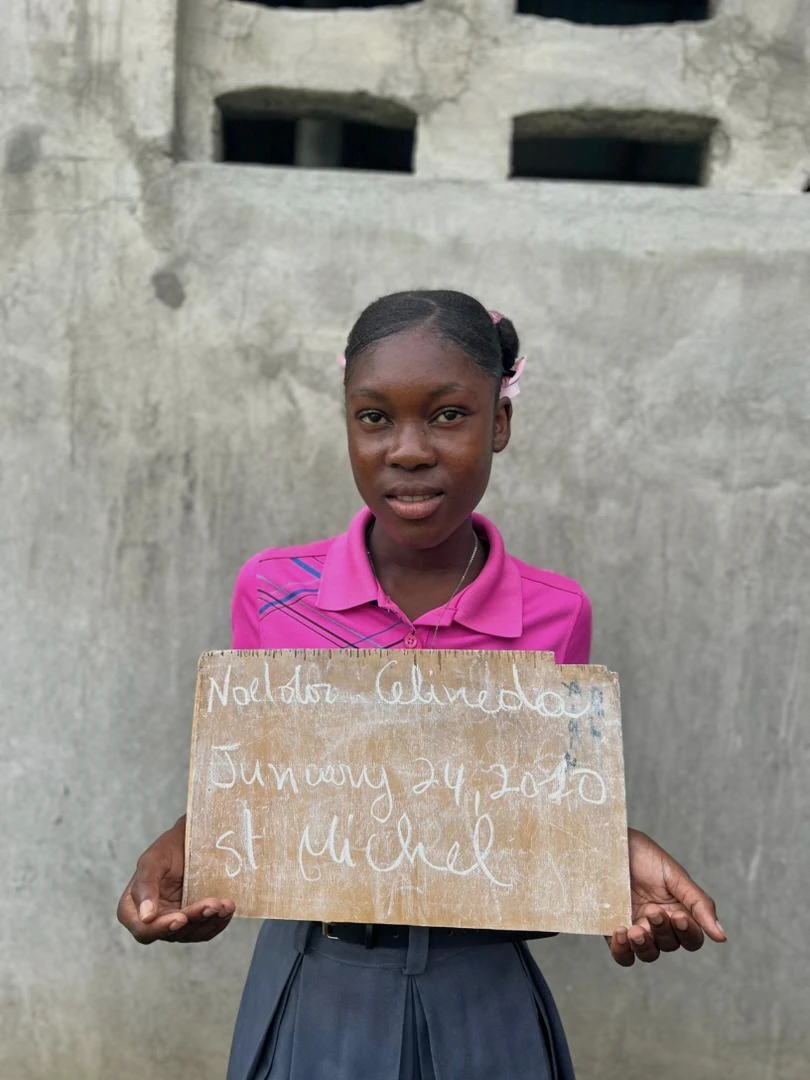 Noeldor Celineda
Junuary 24, 2010
st Michel